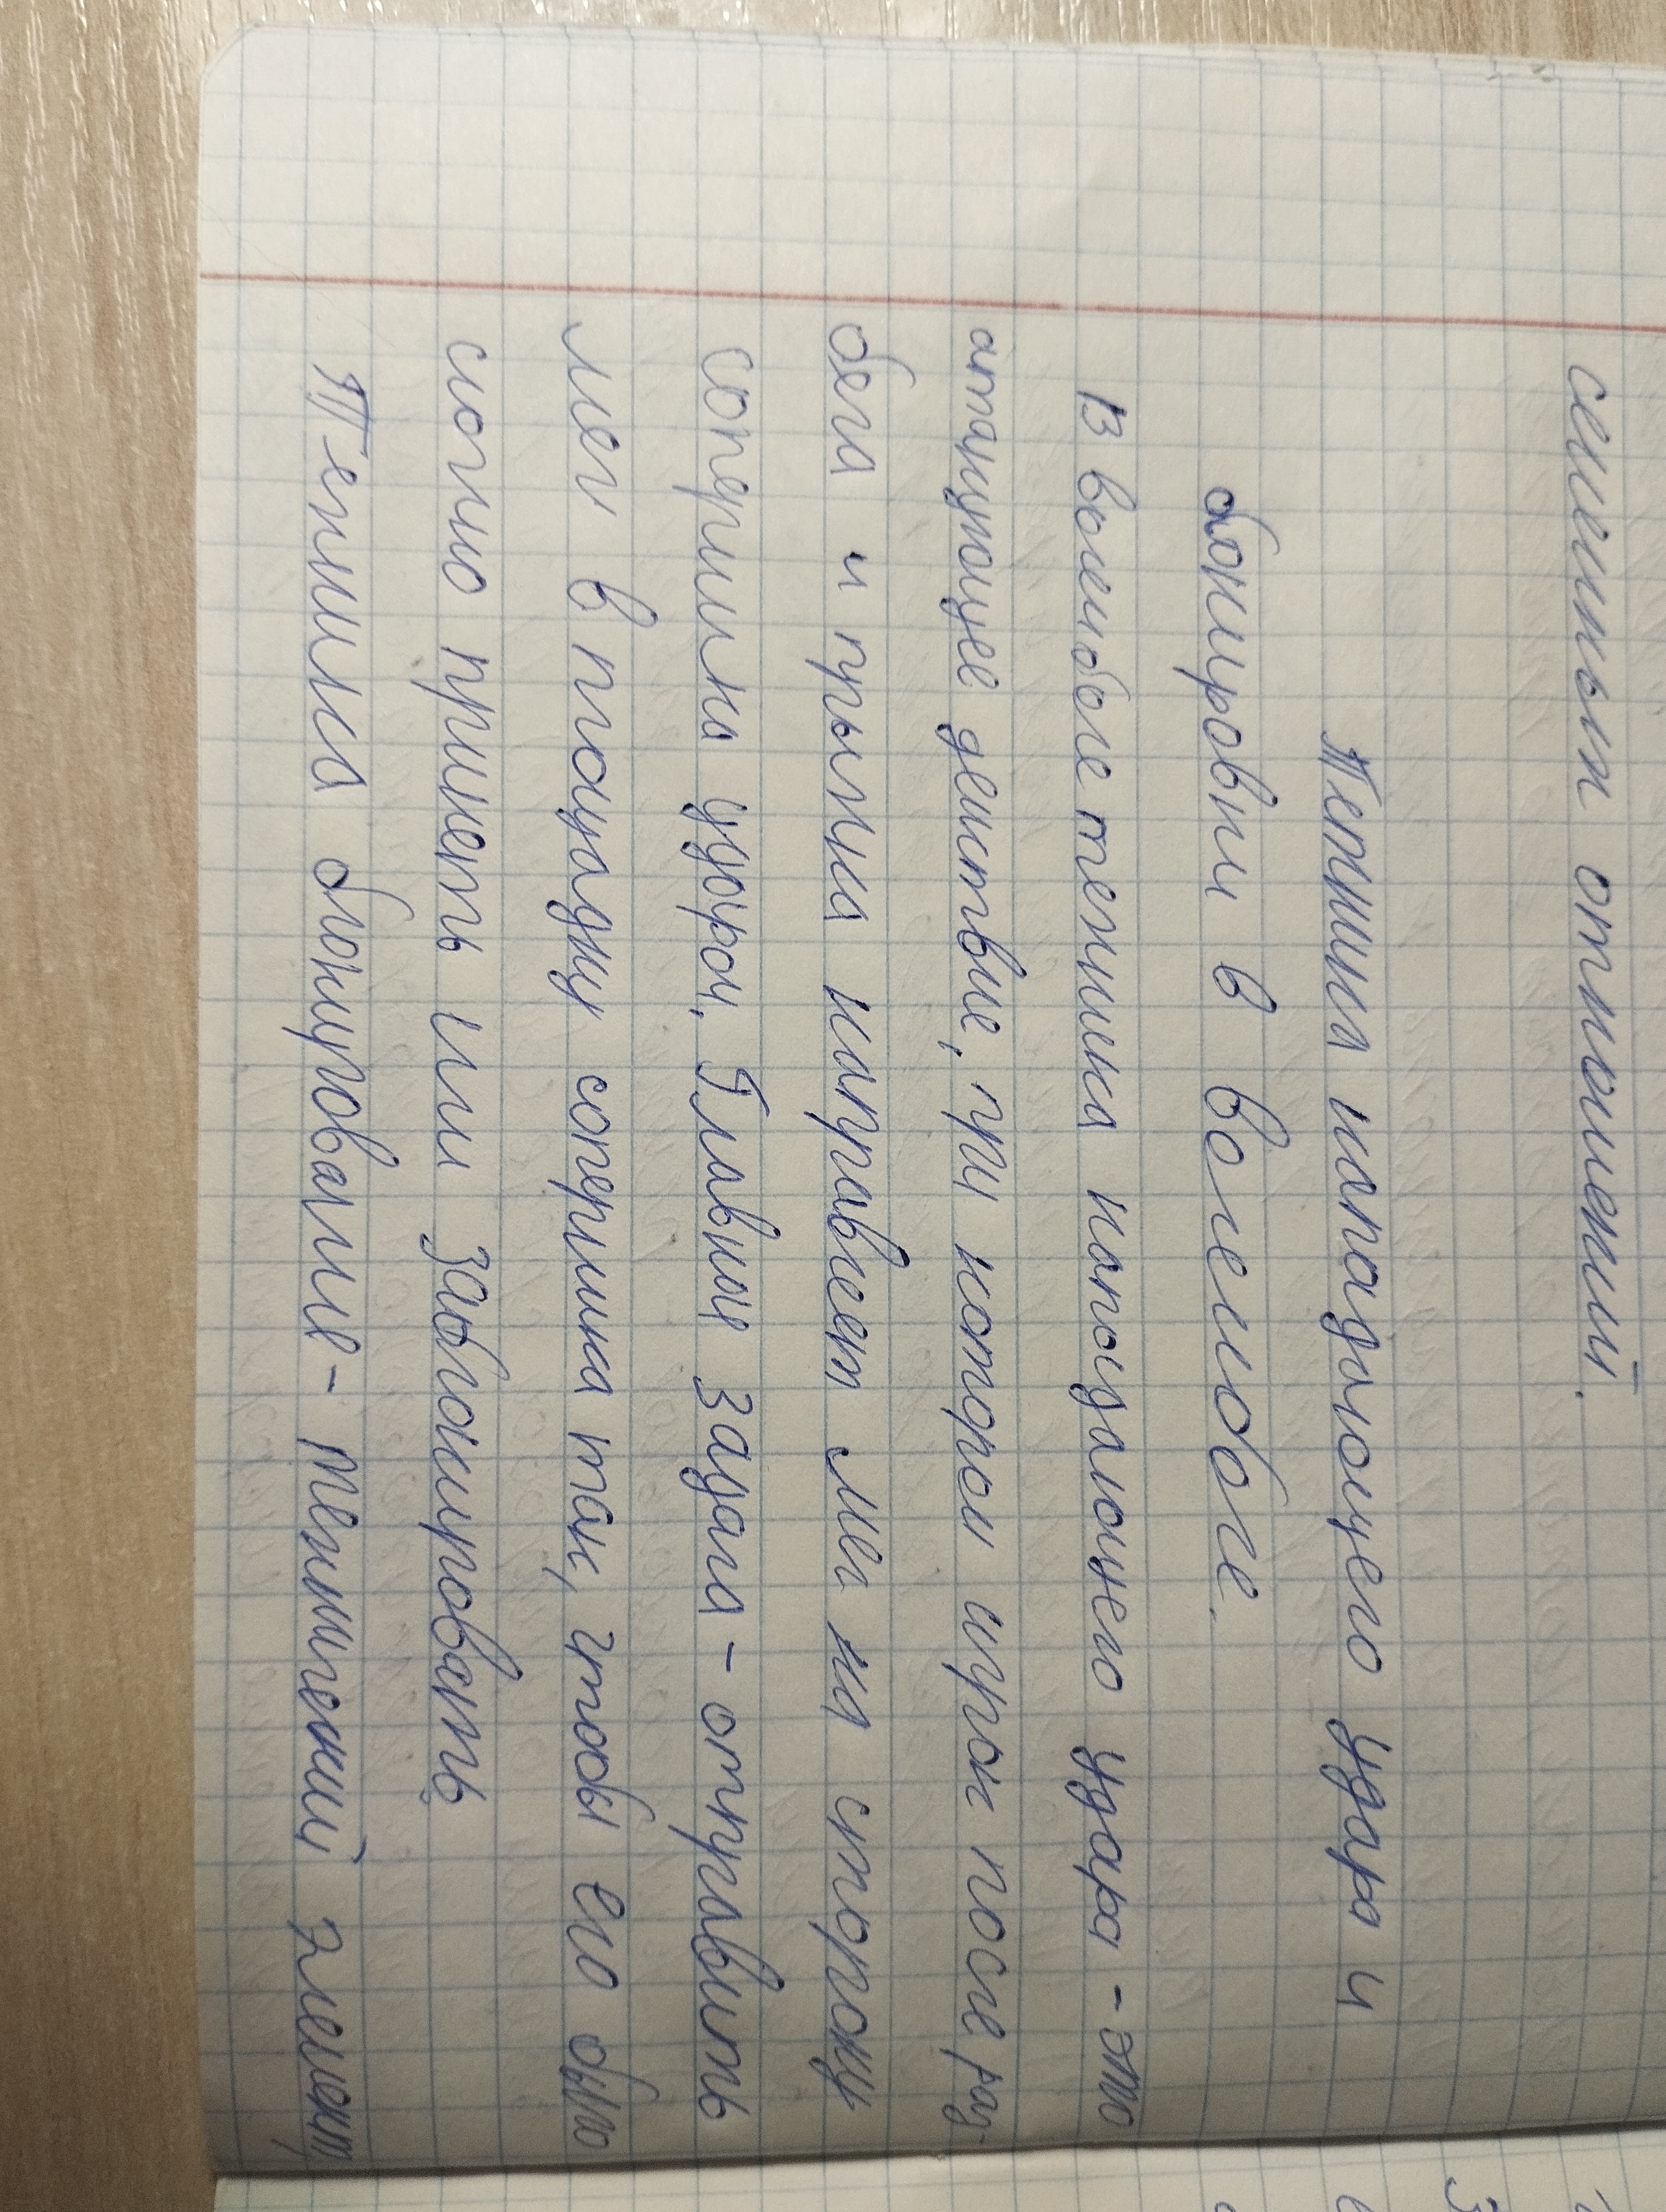 семейных отношений.
Техника нападающего удара и
блокировки в волейболе.
В волейболе техника нападающего удара - это
атакующее действие, при котором игрок после раз-
бега и прыжка направляет мяч на сторону
соперника ударом. Главная задача - отправить
мяч в площадку соперника так, чтобы его было
сложно принять или заблокировать.
Техника блокирование - технический элемент,